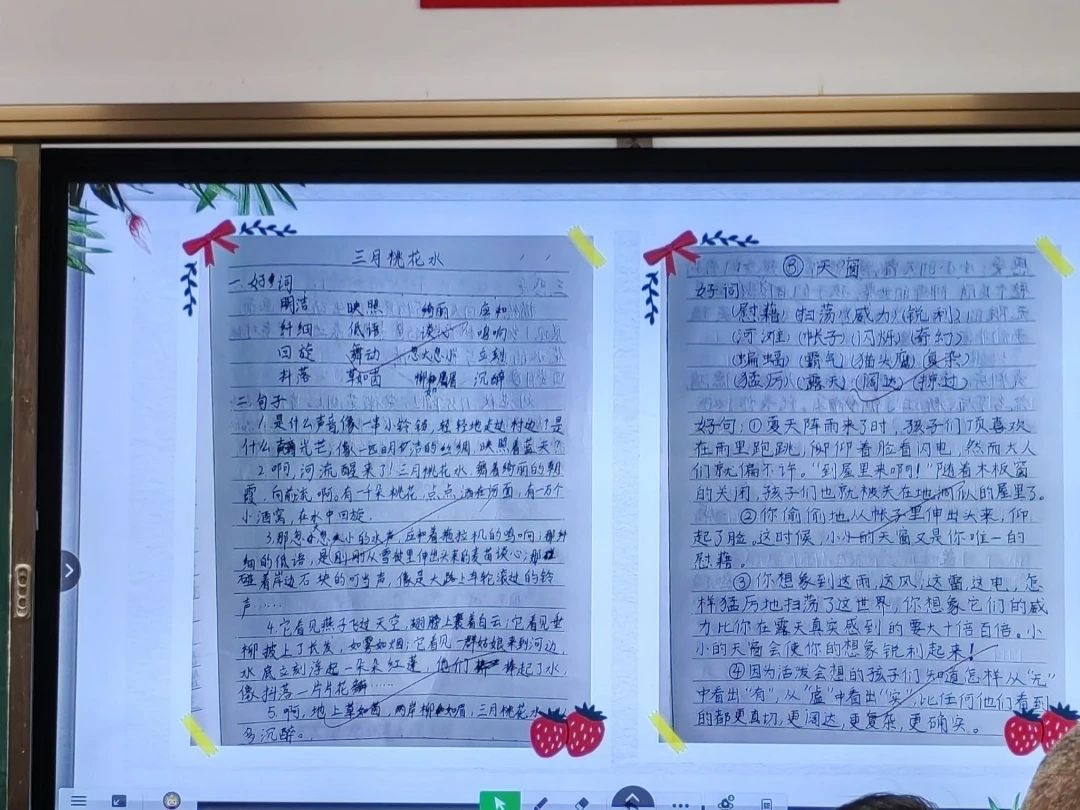 三月桃花水
一.好词
明洁 映照 绮丽 应和
纤细 低语 谈心 鸣响
回旋 舞动 忽大忽小 立刻
抖落 草如茵 柳如眉 沉醉
二.句子
1.是什么声音,像一串小铃铛,轻轻地走过村边?是
什么光芒,像一匹明洁的丝绸,映照着蓝天?
2.啊,河流醒来了!三月桃花水,舞着绮丽的朝
霞,向前流啊。有一千朵桃花,点点洒在河面,有一万个
小酒窝,在水中回旋.
3.那忽大忽小的水声,应和着拖拉机的鸣响;那纤
细的低语,是刚刚从雪被里伸出头来的麦苗谈心;那
碰着岸边石块的叮当声,像是大路上车轮滚过的铃
声……
4.它看见燕子飞过天空,翅膀上裹着白云;它看见垂
柳披上了长发,如雾如烟;它看见一群姑娘来到河边,
水底立刻浮起一朵朵红莲,她们捧起了水,
像抖落一片片花瓣……
5.啊,地上草如茵,两岸柳如眉,三月桃花水,
多沉醉。
③天窗
好词
(慰藉)(扫荡)(威力)(锐利)
(河滩)(帐子)(闪烁)(奇幻)
(蝙蝠)(霸气)(猫头鹰)(复杂)
(猛厉)(露天)(阔达)(掠过)
好句:①夏天阵雨来了时,孩子们顶喜欢
在雨里跑跳,仰着脸看闪电,然而大人
们就偏不许。“到屋里来啊!”随着木板窗
的关闭,孩子们也就被关在地洞似的屋里了。
②你偷偷地从帐子里伸出头来,仰
起了脸。这时候,小小的天窗又是你唯一的
慰藉。
③你想象到这雨,这风,这雷,这电,怎
样猛厉地扫荡了这世界,你想象它们的威
力比你在露天真实感到的要大十倍百倍。小
小的天窗会使你的想象锐利起来!
④因为活泼会想的孩子们知道怎样从“无”
中看出“有”,从“虚”中看出“实”,比任何他们看到
的都更真切,更阔达,更复杂,更确实。